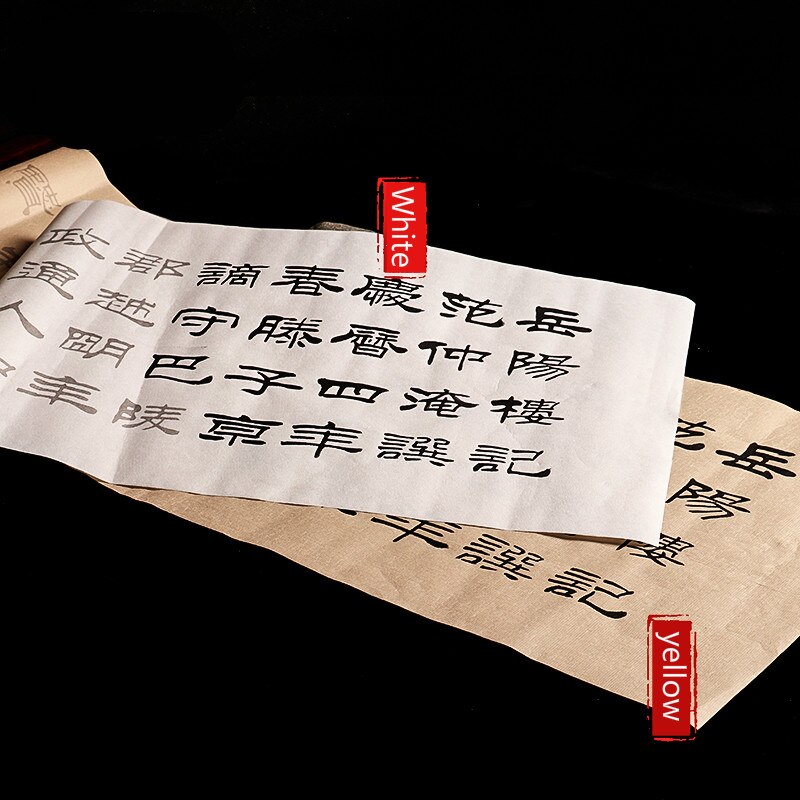 White
岳陽樓記
范仲淹譔
慶曆四年
春滕子京
謫守巴陵
郡越明年
政通人
yellow
岳陽樓記
范譔
年